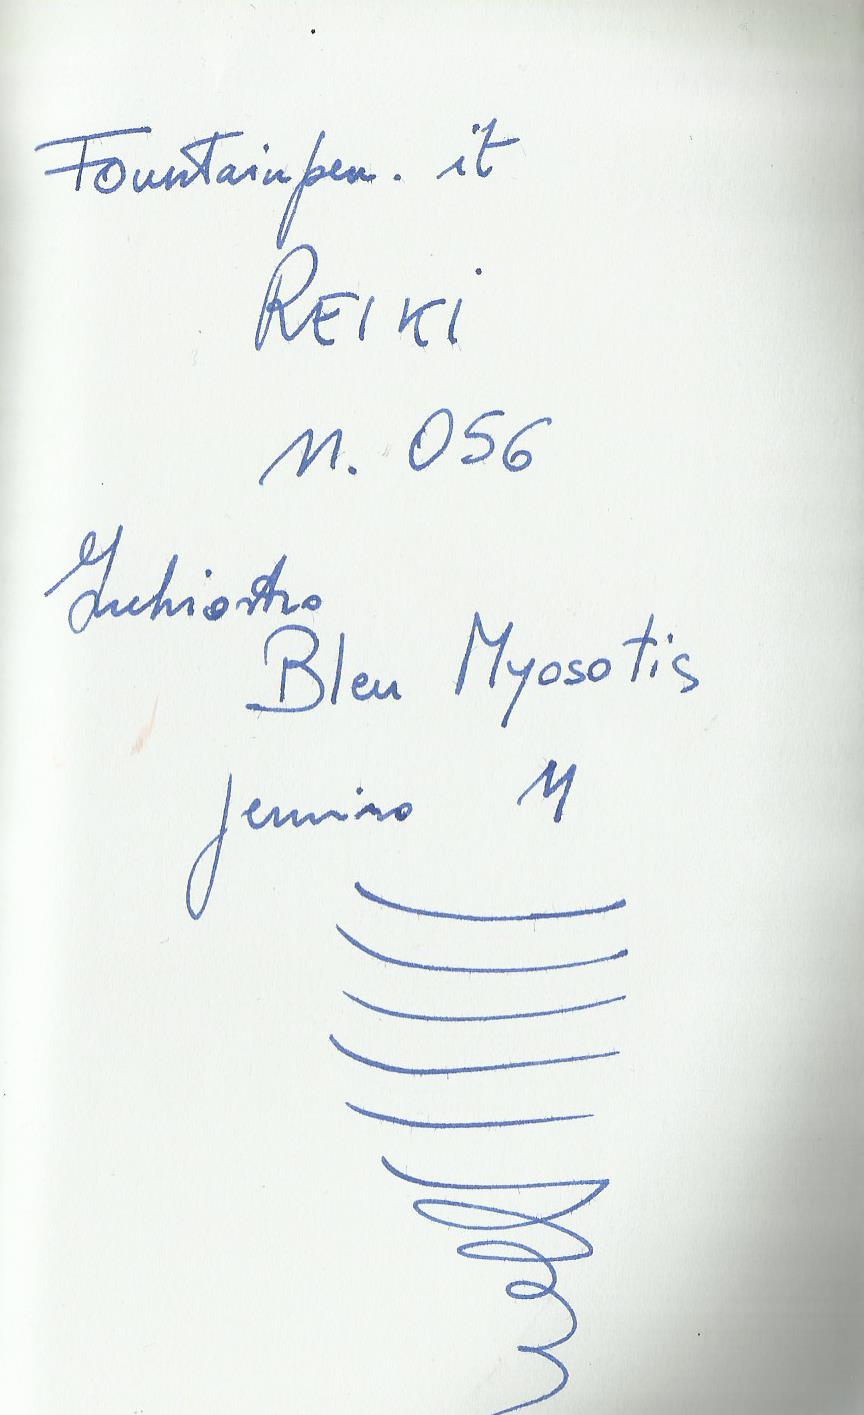 Fountainpen. it
REIKi
n. 056
Inchiostro
Bleu Myosotis
pennino M